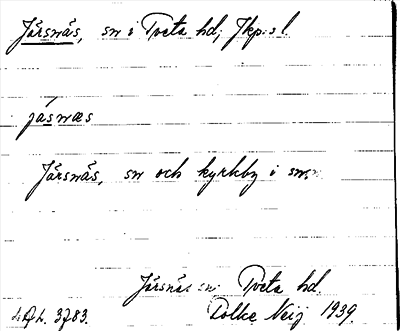 Järsnäs, sn i Tveta hd; Jkp:s l.
jasnæs
Järsnäs, sn och kyrkby i sn.
Järsnäs sn Tveta hd.
4782. 3783. Folke Neij 1939.